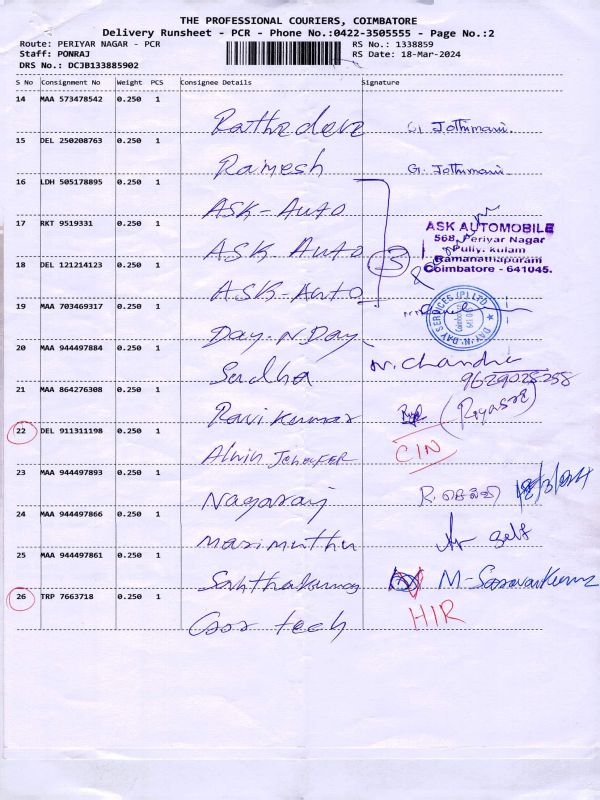 THE PROFESSIONAL COURIERS, COIMBATORE
Delivery Runsheet - PCR - Phone No.:0422-3505555 - Page No.:2
Route: PERIYAR NAGAR - PCR RS No.: 1338859
Staff: PONRAJ RS Date: 18-Mar-2024
DRS No.: DCJB133885902
S No Consignment No Weight PCS Consignee Details Signature
14 MAA 573478542 0.250 1
G. Jothimani.
15 DEL 250208763 0.250 1
Ramesh G. Jothimani
16 LDH 505178895 0.250 1
ASK-Auto
17 RKT 9519331 0.250 1
ASK Auto 3
ASK AUTOMOBILE
568, Periyar Nagar
Puliy. kulam
Ramanathapuram
Coimbatore - 641045.
18 DEL 121214123 0.250 1
ASK-Auto
19 MAA 703469317 0.250 1
Day-N-Day
DAY 'N' DAY SERVICES (P) LTD
Coimbatore
20 MAA 944497884 0.250 1
Sudha N. Chandra
9629028258
21 MAA 864276308 0.250 1
Ravi Kumar
22 DEL 911311198 0.250 1
Alwin CIN
23 MAA 944497893 0.250 1
Nagaraj R. செல்வி 18/3/2024
24 MAA 944497866 0.250 1
Marimuthu self
25 MAA 944497861 0.250 1
26 TRP 7663718 0.250 1
tech HIR